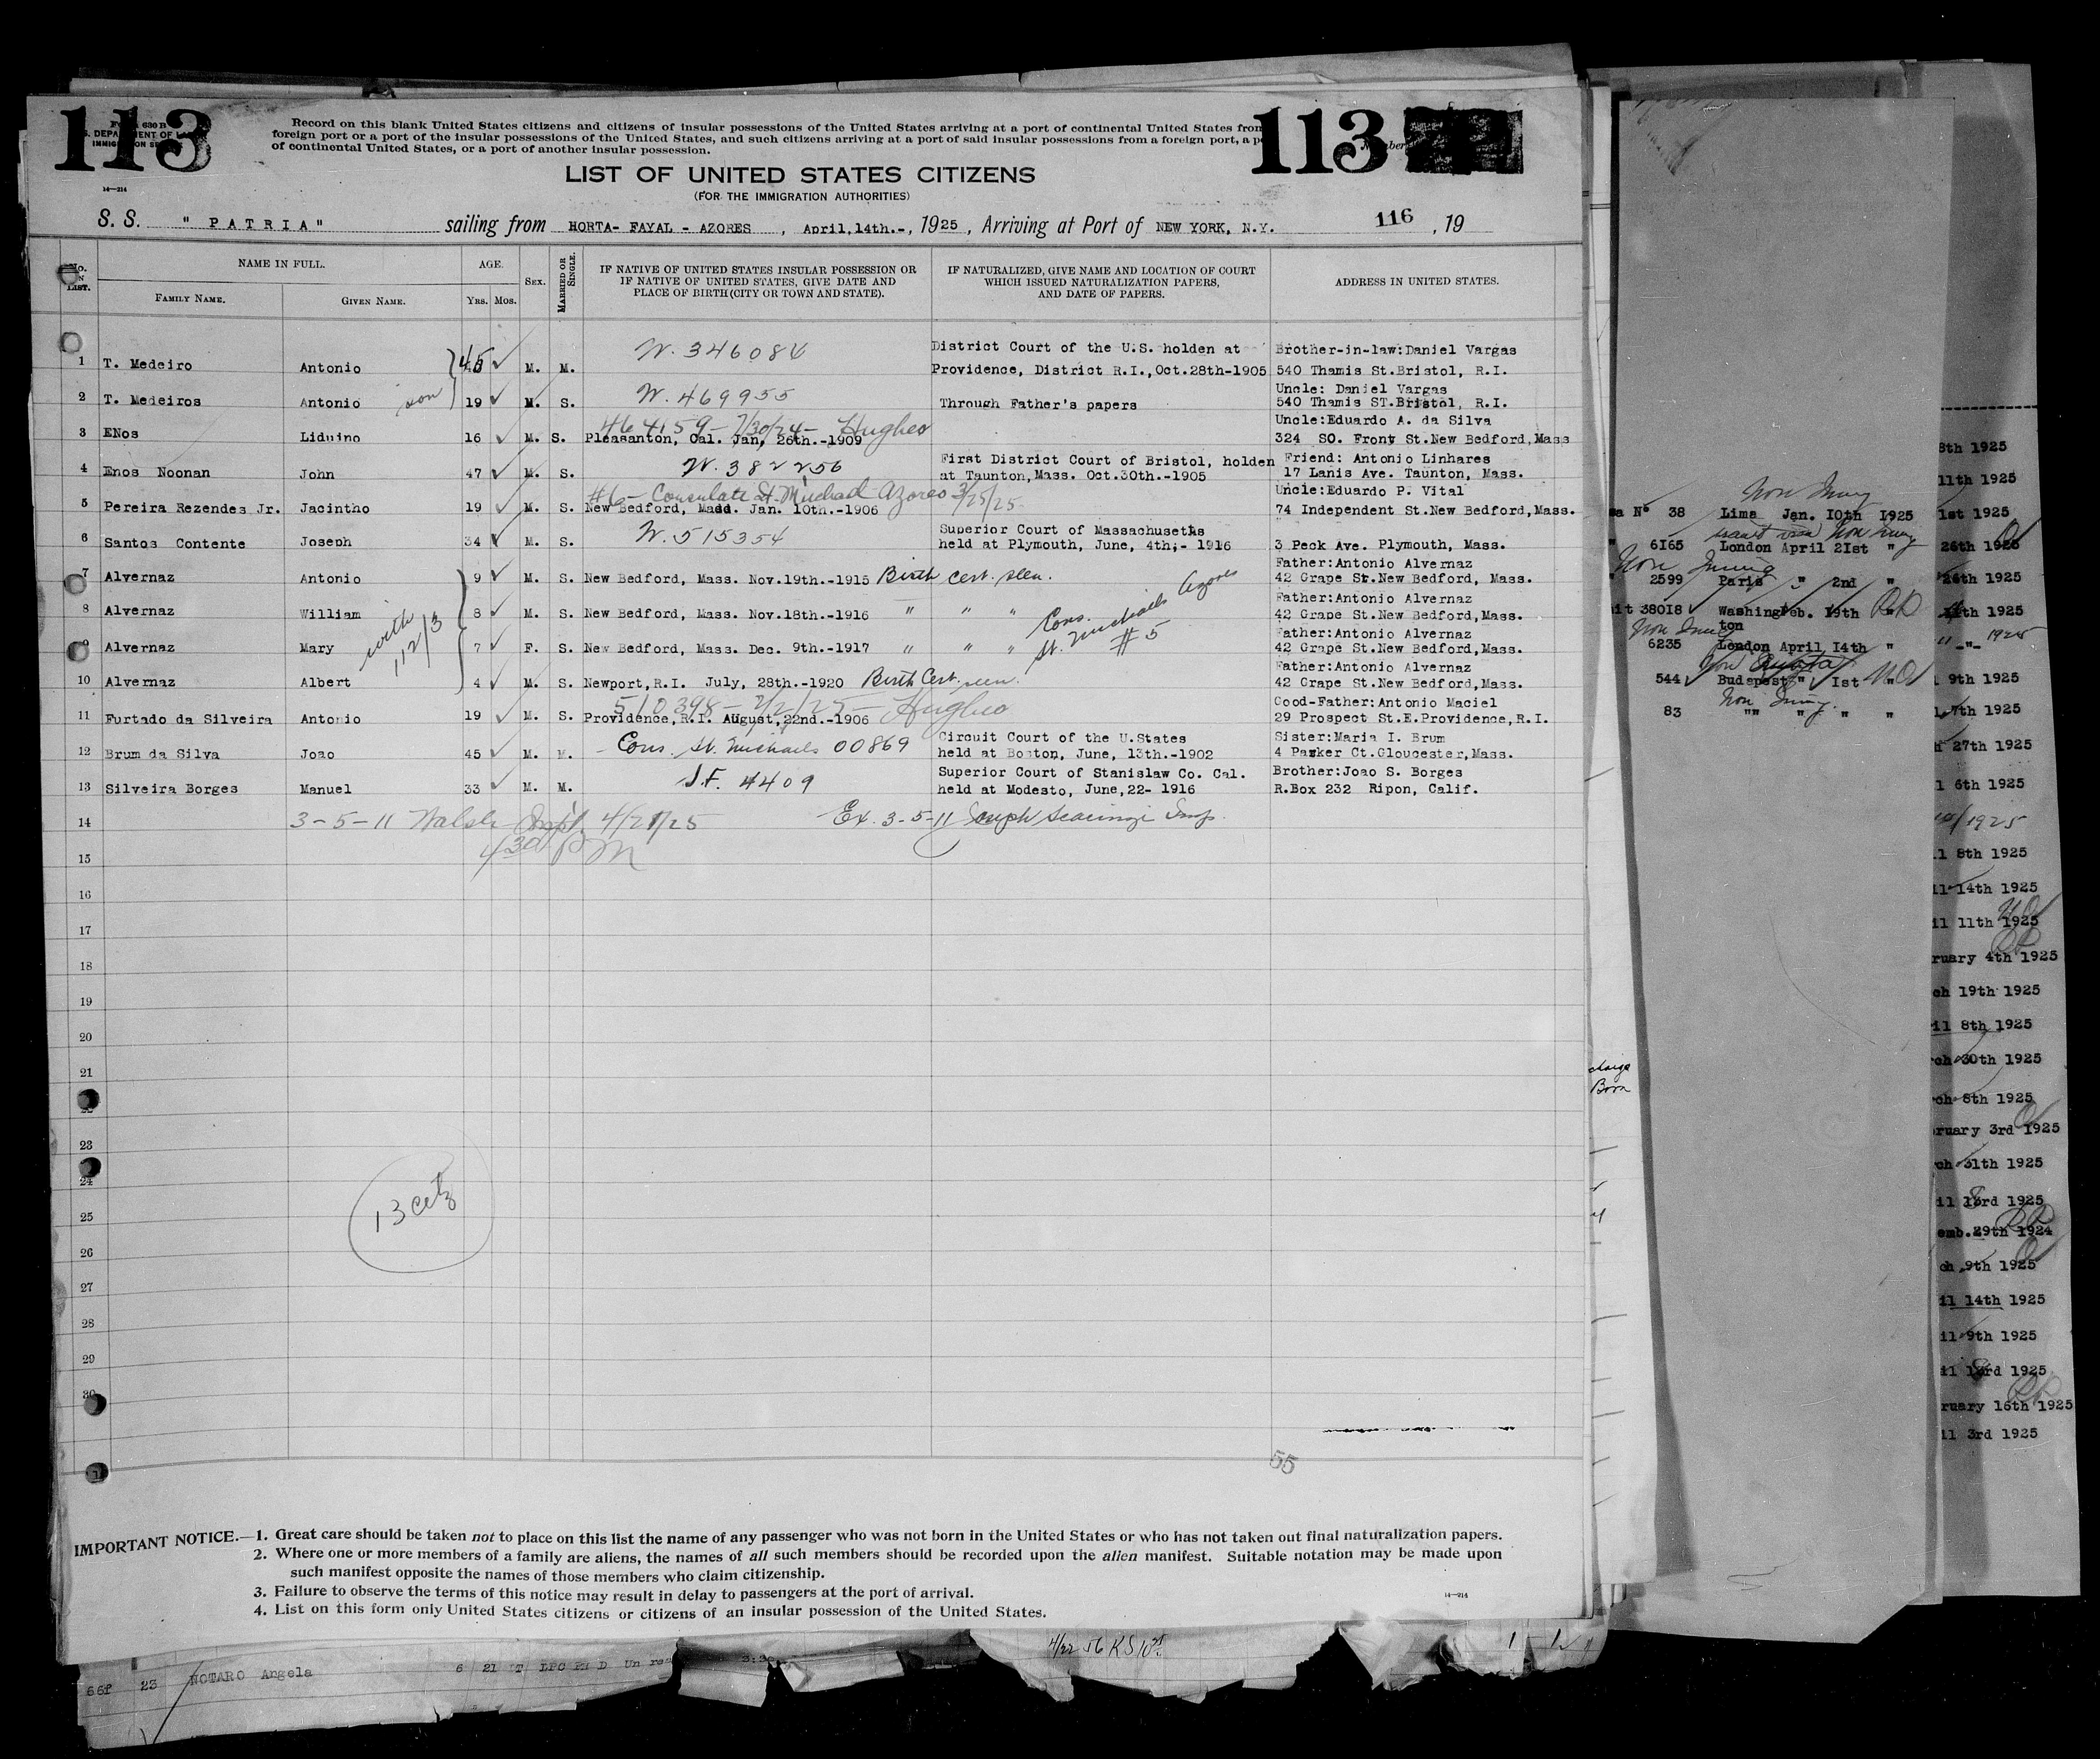 113
113
FORM 630 B
U.S. DEPARTMENT OF LABOR
IMMIGRATION SERVICE
14—214
Record on this blank United States citizens and citizens of insular possessions of the United States arriving at a port of continental United States from
foreign port or a port of the insular possessions of the United States, and such citizens arriving at a port of said insular possessions from a foreign port, a p
of continental United States, or a port of another insular possession.
Number
LIST OF UNITED STATES CITIZENS
(FOR THE IMMIGRATION AUTHORITIES)
S. S. "PATRIA" sailing from HORTA- FAYAL - AZORES , April,14th.-, 1925, Arriving at Port of NEW YORK, N.Y. 116 , 19
No. IN LIST. NAME IN FULL. AGE. SEX. MARRIED OR SINGLE. IF NATIVE OF UNITED STATES INSULAR POSSESSION OR IF NATIVE OF UNITED STATES, GIVE DATE AND PLACE OF BIRTH (CITY OR TOWN AND STATE). IF NATURALIZED, GIVE NAME AND LOCATION OF COURT WHICH ISSUED NATURALIZATION PAPERS, AND DATE OF PAPERS. ADDRESS IN UNITED STATES.
FAMILY NAME. GIVEN NAME. Yrs. Mos.
W. 346086 District Court of the U.S. holden at Brother-in-law:Daniel Vargas
1 T. Medeiro Antonio 45 M. M. Providence, District R.I.,Oct.28th-1905 540 Thamis St.Bristol, R.I.
W. 469955 Uncle: Daniel Vargas
2 T. Medeiros Antonio son 19 M. S. Through Father's papers 540 Thamis ST.Bristol, R.I.
464159- 7/30/24- Hughes Uncle:Eduardo A. da Silva
3 ENos Liduino 16 M. S. Pleasanton, Cal. Jan, 26th.-1909 324 SO. Front St.New Bedford,Mass
W. 382256 First District Court of Bristol, holden Friend: Antonio Linhares
4 Enos Noonan John 47 M. S. at Taunton,Mass. Oct.30th.-1905 17 Lanis Ave. Taunton, Mass.
#6- Consulate St. Michael Azores 3/25/25 Uncle:Eduardo P. Vital
5 Pereira Rezendes Jr. Jacintho 19 M. S. New Bedford, Madd. Jan. 10th.-1906 74 Independent St.New Bedford,Mass.
W. 515354 Superior Court of Massachusetts
6 Santos Contente Joseph 34 M. S. held at Plymouth, June, 4th;- 1916 3 Peck Ave. Plymouth, Mass.
Father:Antonio Alvernaz
7 Alvernaz Antonio 9 M. S. New Bedford, Mass. Nov.19th.-1915 Birth cert. seen. 42 Grape St.New Bedford, Mass.
Father:Antonio Alvernaz
8 Alvernaz William 8 M. S. New Bedford, Mass. Nov.18th.-1916 " " " 42 Grape St.New Bedford,Mass.
with 112/3
Cons. St. Michaels Azores #5
Father:Antonio Alvernaz
9 Alvernaz Mary 7 F. S. New Bedford, Mass. Dec. 9th.-1917 " " " 42 Grape St.New Bedford,Mass.
Father:Antonio Alvernaz
10 Alvernaz Albert 4 M. S. Newport,R.I. July, 28th.-1920 Birth Cert. seen. 42 Grape St.New Bedford,Mass.
510398- 2/2/25- Hughes Cood-Father:Antonio Maciel
11 Furtado da Silveira Antonio 19 M. S. Providence,R.I. August,22nd.-1906 29 Prospect St.E.Providence,R.I.
Cons. St. Michaels 00869 Circuit Court of the U.States Sister:Maria I. Brum
12 Brum da Silva Joao 45 M. M. held at Boston, June, 13th.-1902 4 Parker Ct.Gloucester,Mass.
S.F. 4409 Superior Court of Stanislaw Co. Cal. Brother:Joao S. Borges
13 Silveira Borges Manuel 33 M. M. held at Modesto, June,22- 1916 R.Box 232 Ripon, Calif.
14 3-5-11 Walsh Inspt. 4/21/25 Ex. 3-5-11 Insp.
4 30 PM
15
16
17
18
19
20
21
22
23
24
13 citz
25
26
27
28
29
30
55
IMPORTANT NOTICE.—1. Great care should be taken not to place on this list the name of any passenger who was not born in the United States or who has not taken out final naturalization papers.
2. Where one or more members of a family are aliens, the names of all such members should be recorded upon the alien manifest. Suitable notation may be made upon
such manifest opposite the names of those members who claim citizenship.
3. Failure to observe the terms of this notice may result in delay to passengers at the port of arrival.
4. List on this form only United States citizens or citizens of an insular possession of the United States.
14—214
66f 23 NOTARO Angela 6 21
Non Immg
Nº 38 Lima Jan. I0th I925
6I65 London April 2Ist "
Non Immg
2599 Paris " 2nd "
380I8 Washing Feb. I9th "
ton
Non Immg
6235 London April I4th "
Non Quota
544 Budapest " Ist "
Non Immg.
83 "" " " "
8th 1925
11th 1925
1st 1925
26th 1925
26th 1925
11th 1925
" -"- 1925
9th 1925
7th 1925
27th 1925
6th 1925
1925
8th 1925
14th 1925
11th 1925
ruary 4th 1925
ch 19th 1925
il 8th 1925
ch 30th 1925
Born
ch 8th 1925
ruary 3rd 1925
ch 31th 1925
il 13rd 1925
emb.29th 1924
ch 9th 1925
il 14th 1925
il 9th 1925
il 13rd 1925
ruary 16th 1925
il 3rd 1925